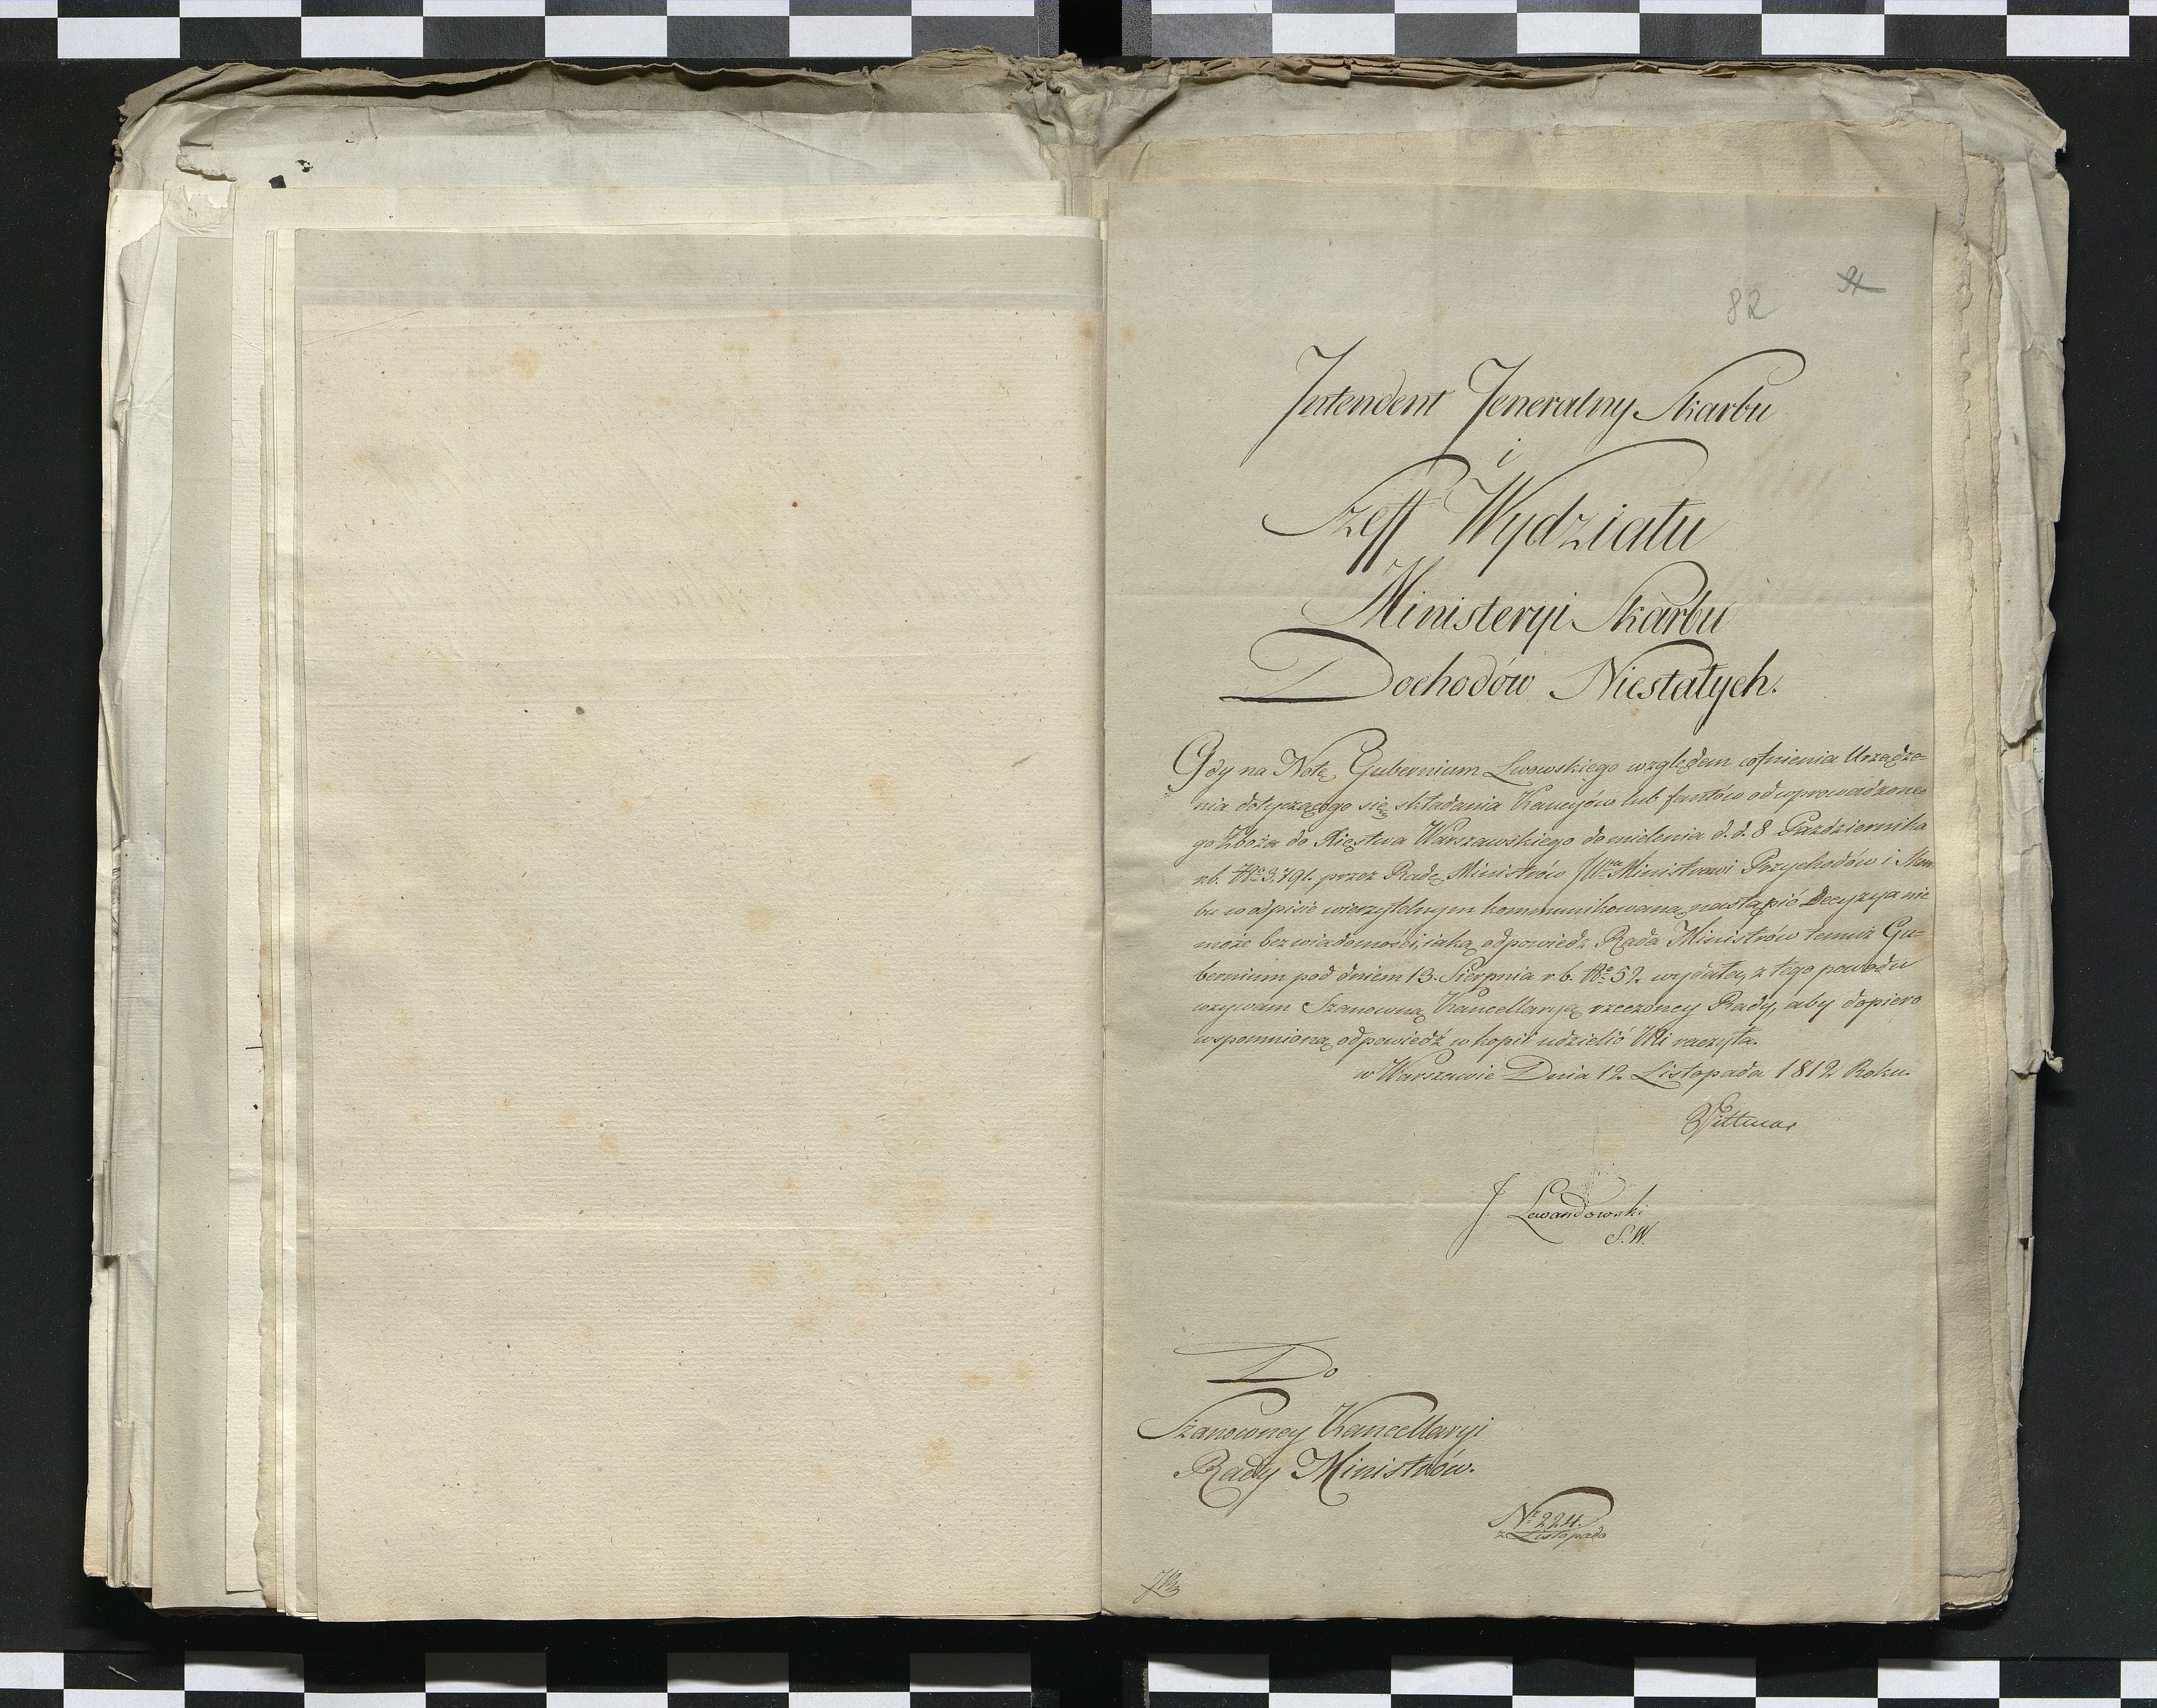 82
Intendent Jeneralny Skarbu
i
Szeff Wydziału
Ministeryi Skarbu
Dochodów Niestałych.
Gdy na Notę Gubernium Lwowskiego względem cofnienia Urządze-
nia dotyczącego się składania Kaucyiów lub fantów od wprowadzone
go Zboża do Xięstwa Warszawskiego do mielenia d. d. 8 Października
r.b. No 3,791. przez Radę Ministrów JW. Ministrowi Przychodów i Skar
bu w odpisie wierzytelnym kommunikowaną nastąpić Decyzya nie
może bez wiadomości, iaką odpowiedź Rada Ministrów temuż Gu-
bernium pod dniem 13. Sierpnia r. b. No 52. wydała, z tego powodu
wzywam Szanowną Kancellaryą rzeczoney Rady, aby dopiero
wspomnioną odpowiedź w kopii udzielić Mi raczyła.
w Warszawie Dnia 12 Listopada 1812 Roku.
J Lewandowski
S.W.
Do
Szanowney Kancellaryi
Rady Ministrów.
Nr 224.
z Listopada